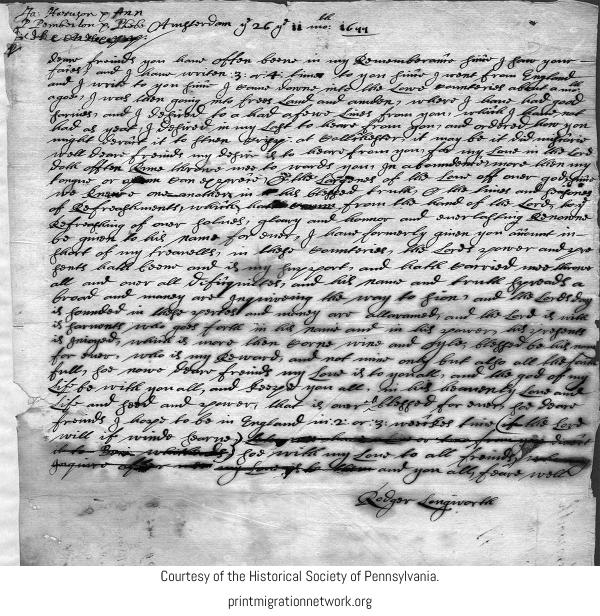 Ja: Harrison p Ann
p Pemberton p Phebe
Amsterdam ye 26 ye 11 mo: 1677
deare freinds you have often beene in my Remembrance since I saw your
faces, and I have writen 3: or 4 times to you since I went from England
and I write to you since I came downe into the Lowe Countries about a mo:
agoe, I was then going into frees Land and emden, where I have had good
sarvies, and I desired to a had a fewe Lines from you, which I have not
had as yeat I desired in my Last to heare from you, and ordered how you
might derect it to
well deare freinds my desire is to heare from you, for my Love in the Lord
doth often Rune throwe mee to wards you, in abondance more then my
tongue or can express, the Largenes of the Love off ower god, since
we knewe one another in his blessed truth, & the times and seasons
of Refreshments, which from the hand of the Lord, to ye
Refreshing of ower soules, glory and honnor and everlasting Renowne
be given to his name for ever, I have formerly given you account in
short of my travells, in these Countries, the Lords power and pre
sents hath beene and is my support, and hath carried mee throwe
all and over all difiqulties, and his name and truth spreads a
broad and maney are Inquireing the way to sion, and the Lords day
is sounded in these partes and maney are allaramed, and the Lord is with
is sarvents who goes forth in his name and in his power, his presents
is injoyed, which is more then corne wine and oyle, blessed be his name
for ever, who is my Reward, and not mine only but also all the faith
full, soe nowe deare freinds my Love is to you all, and the god of my
Life be with you all and keepe you all in his heavenly Love and
Life and seed and power, that is over all blessed for ever, soe deare
freinds I hope to be in England in: 2 or 3: weekes time (if the Lord
will if winde searve) soe with my Love to all freinds
and you all, feare well
Rodger Longworth
Courtesy of the Historical Society of Pennsylvania.
printmigrationnetwork.org